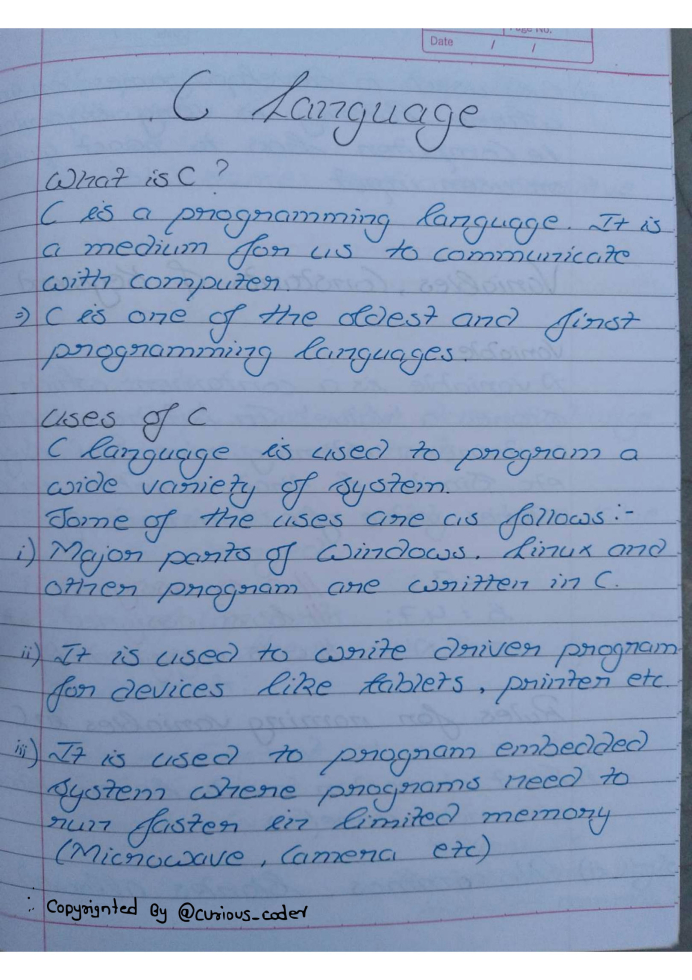 Page No.
Date / /
C Language
What is C?
C is a programming language. It is
a medium for us to communicate
with computer
⇒ C is one of the oldest and first
programming languages.
Uses of C
C language is used to program a
wide variety of system.
Some of the uses are as follows:-
i) Major parts of Windows. Linux and
other program are written in C.
ii) It is used to write driver program
for devices like tablets, printer etc
iii) It is used to program embedded
system where programs need to
run faster in limited memory
(Microwave, Camera etc)
∴ Copyrignted By @curious_coder